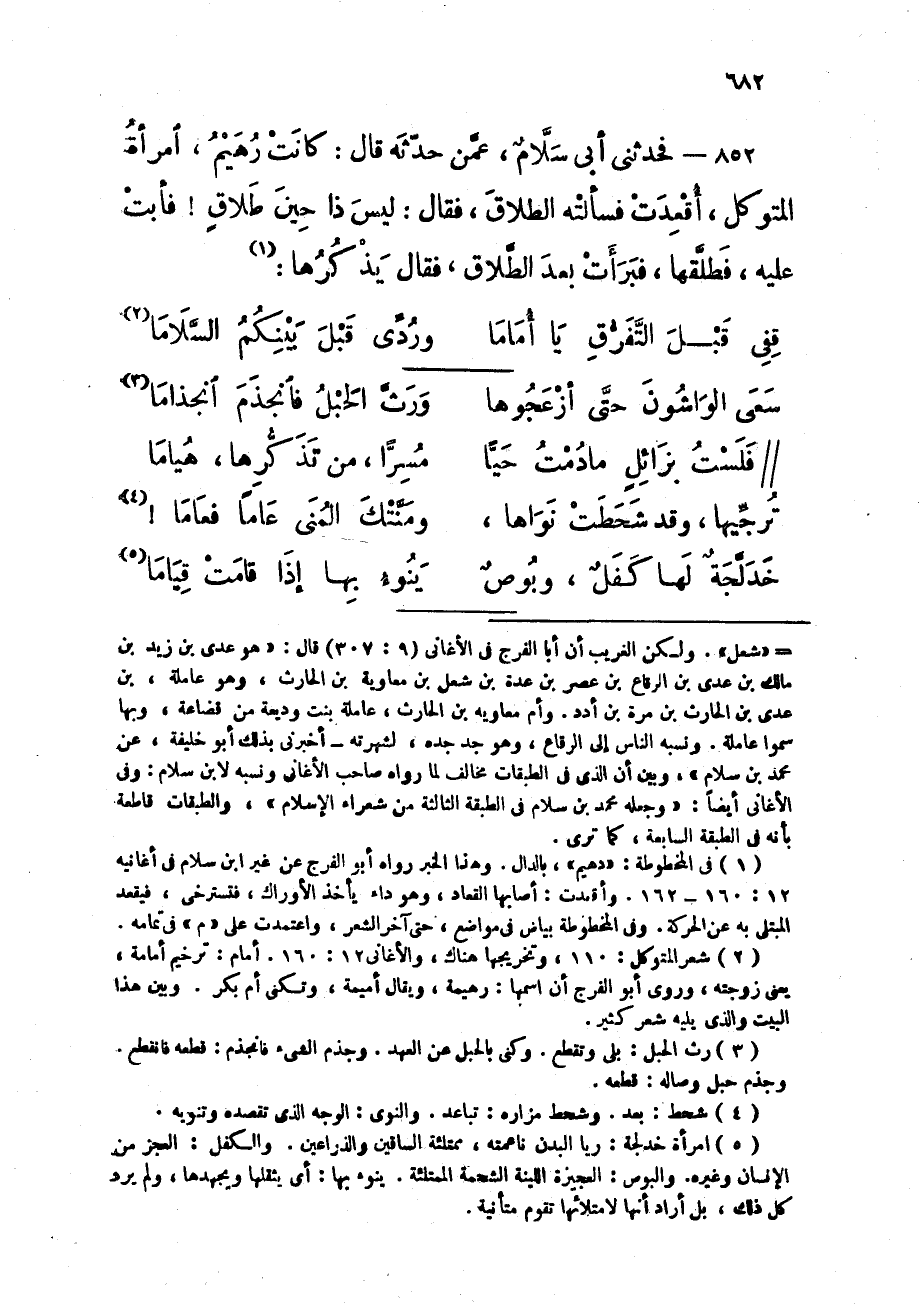 ٦٨٢
٨٥٢ — فحدثنى أبى سَلَّامٌ، عمَّن حدّثَه قال : كانَتْ رُهَيْمُ، أمرأةُ
المتوكل، أُقْعِدَتْ فسألتْه الطلاقَ، فقال : ليسَ ذا حِينَ طَلَاقٍ ! فأبتْ
عليه، فَطلَّقها، فبَرَأَتْ بعدَ الطَّلاق، فقال يَذْكُرُها :(١)
قِفِى قَبْـــلَ التَّفَرُّقِ يَا أُمَامَا ورُدِّى قَبْلَ بَيْنِكُمُ السَّلَامَا(٢)
سَعَى الوَاشُونَ حتَّى أزْعَجُوها وَرَثَّ الحَبْلُ فأنجذَمَ أنجذامَا(٣)
// فَلَسْتُ بزَائلٍ مادُمْتُ حَيًّا مُسِرًّا، من تَذَكُّرِها، هُيامَا
تُرجِّيها، وقد شَحَطَتْ نَوَاها، ومَنَّتْكَ المُنَى عَاماً فعَامَا !(٤)
خَدَلَّجَةٌ لَهـا كَفَلٌ، وبُوصٌ يَنُوءُ بِهـا إذَا قامَتْ قِيَامَا(٥)
= «شعل» . ولـكن الغريب أن أبا الفرج فى الأغانى (٩ : ٣٠٧) قال : «هو عدى بن زيد بن
مالك بن عدى بن الرقاع بن عصر بن عدة بن شعل بن معاوية بن الحارث، وهو عاملة، بن
عدى بن الحارث بن مرة بن أدد. وأم معاويه بن الحارث، عاملة بنت وديعة من قضاعة، وبها
سموا عاملة . ونسبه الناس إلى الرقاع، وهو جد جده، لشهرته – أخبرنى بذلك أبو خليفة، عن
محمد بن سلام»، وبين أن الذى فى الطبقات مخالف لما رواه صاحب الأغانى ونسبه لابن سلام : وفى
الأغانى أيضاً : «وجعله محمد بن سلام فى الطبقة الثالثة من شعراء الإسلام»، والطبقات قاطعة
بأنه فى الطبقة السابعة، كما ترى .
(١) فى المخطوطة : «دهيم»، بالدال. وهذا الخبر رواه أبو الفرج عن غير ابن سلام فى أغانيه
١٢ : ١٦٠ – ١٦٢ . وأقعدت : أصابها القعاد، وهو داء يأخذ الأوراك، فتسترخى، فيقعد
المبتلى به عن الحركة. وفى المخطوطة بياض فى مواضع، حتى آخر الشعر، واعتمدت على «م» فى تمامه .
(٢) شعر المتوكل : ١١٠، وتخريجها هناك، والأغانى ١٢ : ١٦٠ . أمام : ترخيم أمامة،
يعنى زوجته، وروى أبو الفرج أن اسمها : رهيمة، ويقال أميمة، وتـكنى أم بكر . وبين هذا
البيت والذى يليه شعر كثير .
(٣) رث الحبل : بلى وتقطع . وكنى بالحبل عن العهد . وجذم الشىء فانجذم : قطعه فانقطع .
وجذم حبل وصاله : قطعه .
(٤) شحط : بعد . وشحط مزاره : تباعد . والنوى : الوجه الذى تقصده وتنويه .
(٥) امرأة خدلجة : ريا البدن ناعمته، ممتلئة الساقين والذراعين . والـكفل : العجز من
الإنسان وغيره. والبوص : العجيزة اللينة الشحمة الممتلئة . ينوء بها : أى يثقلها ويجهدها، ولم يرد
كل ذلك، بل أراد أنها لامتلائها تقوم متأنية .